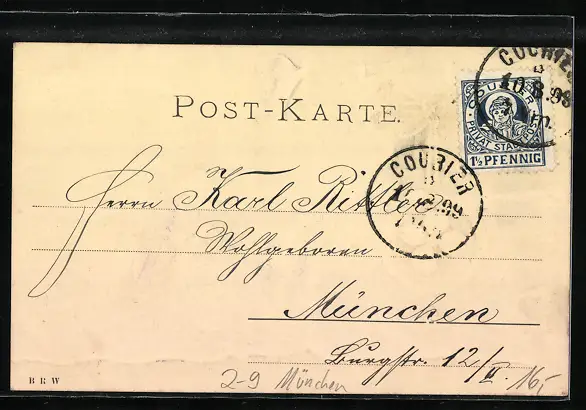 POST-KARTE.
COURIER
PRIVAT STADTPOST
1½ PFENNIG
COURIER
10.8.99
COURIER
99
Herrn Karl Rittler
Wohlgeboren
München
Burgstr. 12/II
B R W
2-9 München
16,-